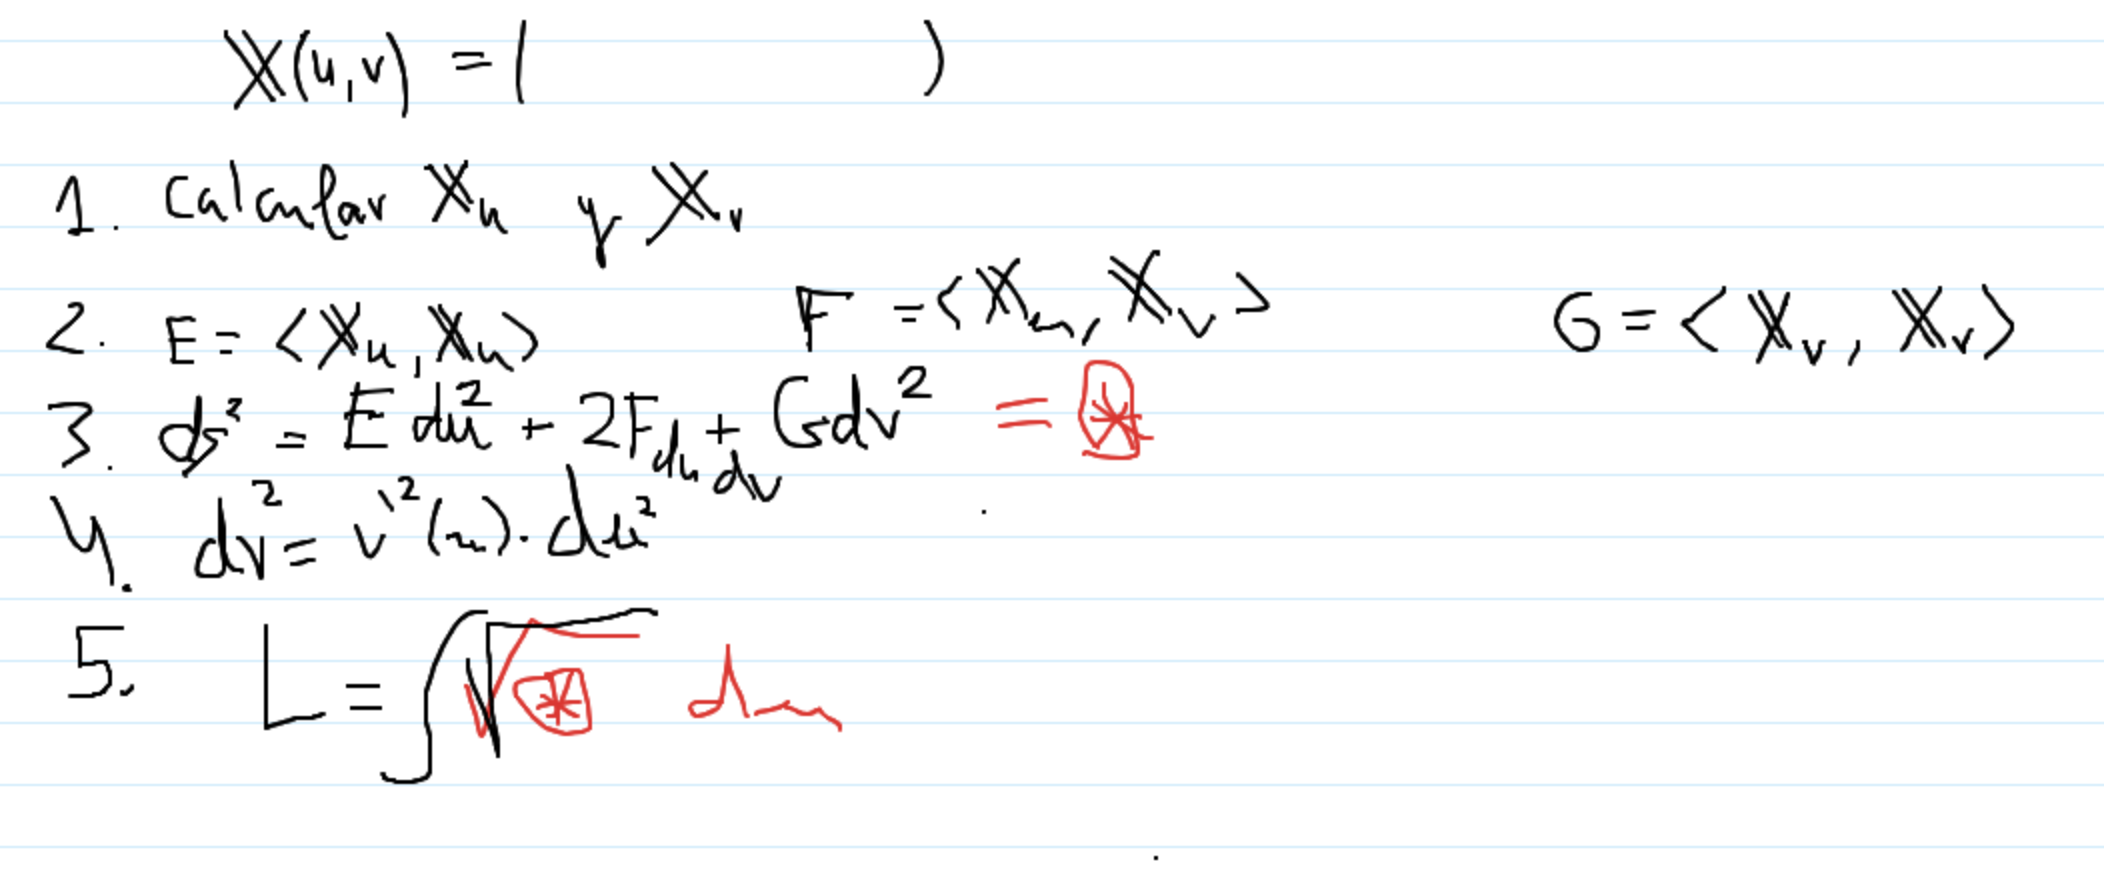 𝕏(u,v) = ( )
1. Calcular 𝕏u y 𝕏v
2. E = <𝕏u, 𝕏u> F = <𝕏u, 𝕏v> G = <𝕏v, 𝕏v>
3. ds² = E du² + 2F du dv + G dv² = ⊛
4. dv² = v'²(u) · du²
5. L = ∫ √⊛ du